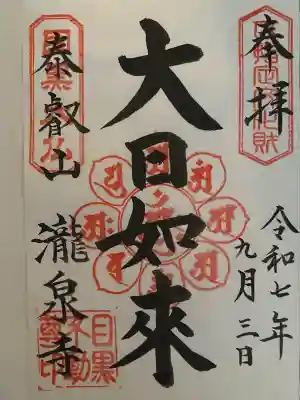 奉拝
令和七年
九月三日
大日如來
泰叡山
瀧泉寺
目黒不動尊印